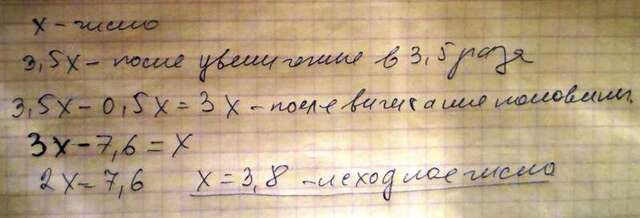 x - число
3,5x - после увеличение в 3,5 раза
3,5x - 0,5x = 3x - после вычитание половины
3x - 7,6 = x
2x = 7,6 x = 3,8 - исходное число